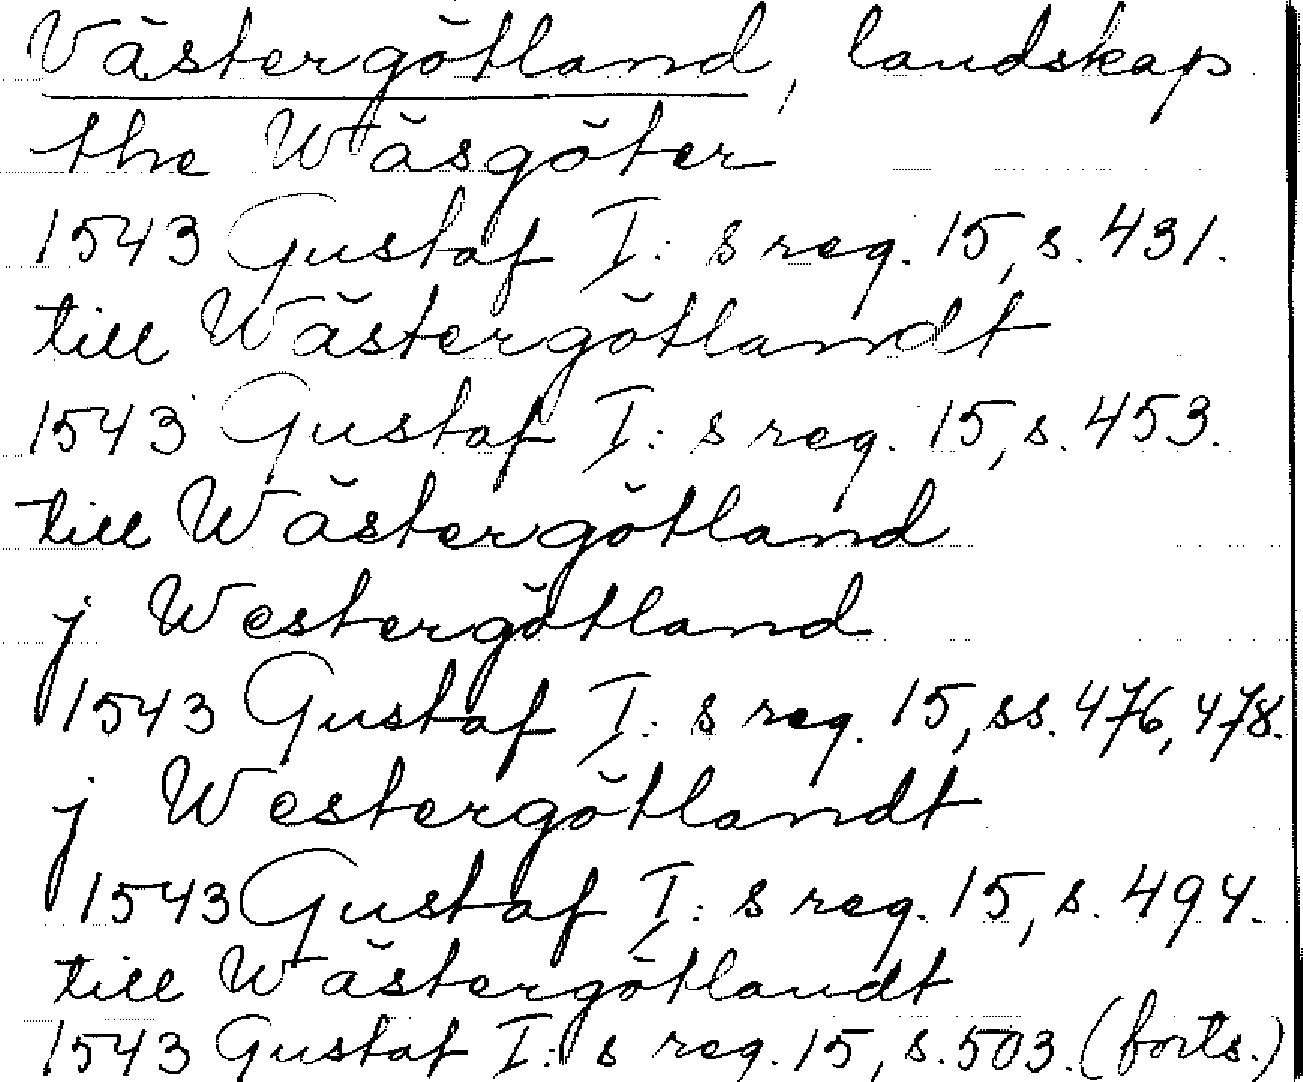 Västergötland, landskap
the Wäsgöter
1543 Gustaf I:s reg. 15, s. 431.
till Wästergötlandt
1543 Gustaf I:s reg. 15, s. 453.
till Wästergötland
j Westergötland
1543 Gustaf I:s reg. 15, ss. 476, 478.
j Westergötlandt
1543 Gustaf I:s reg. 15, s. 494.
till Wästergötlandt
1543 Gustaf I:s reg. 15, s. 503. (forts.)